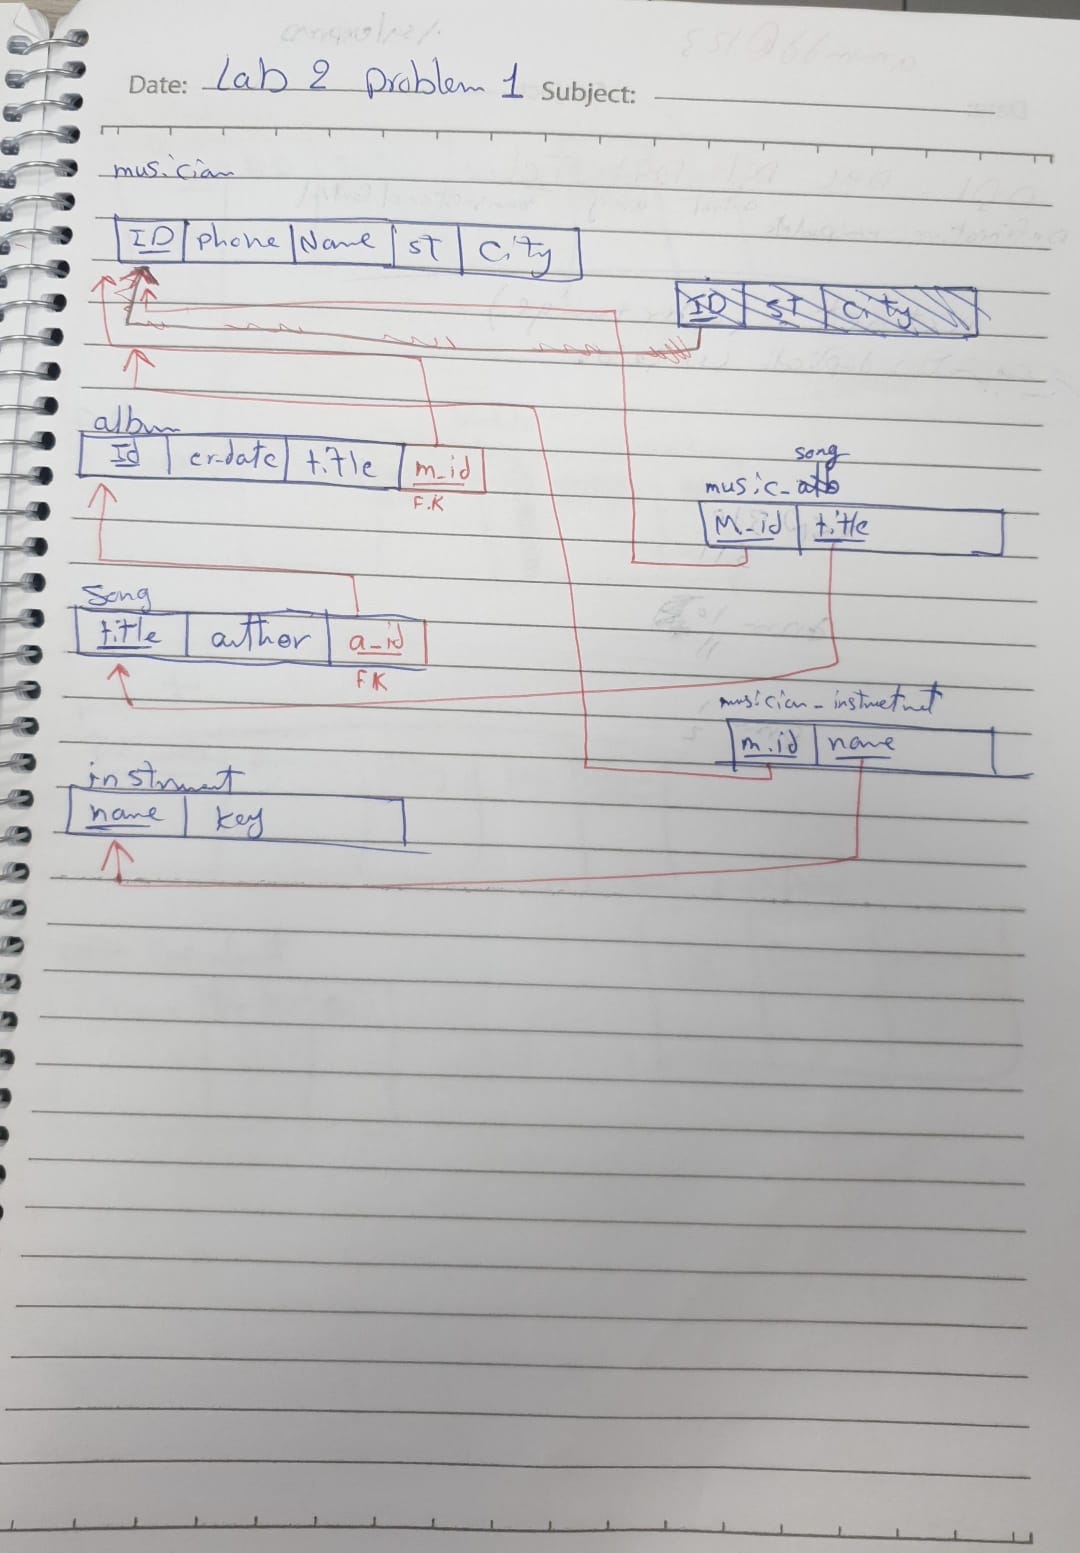 Date: Lab 2 Problem 1 Subject:
musician
ID phone Name st City
ID st City
album
Id cr-date title m_id
F.K
song
music_
M_id title
Song
title auther a_id
FK
musician_instruetnet
m.id name
instrument
name key